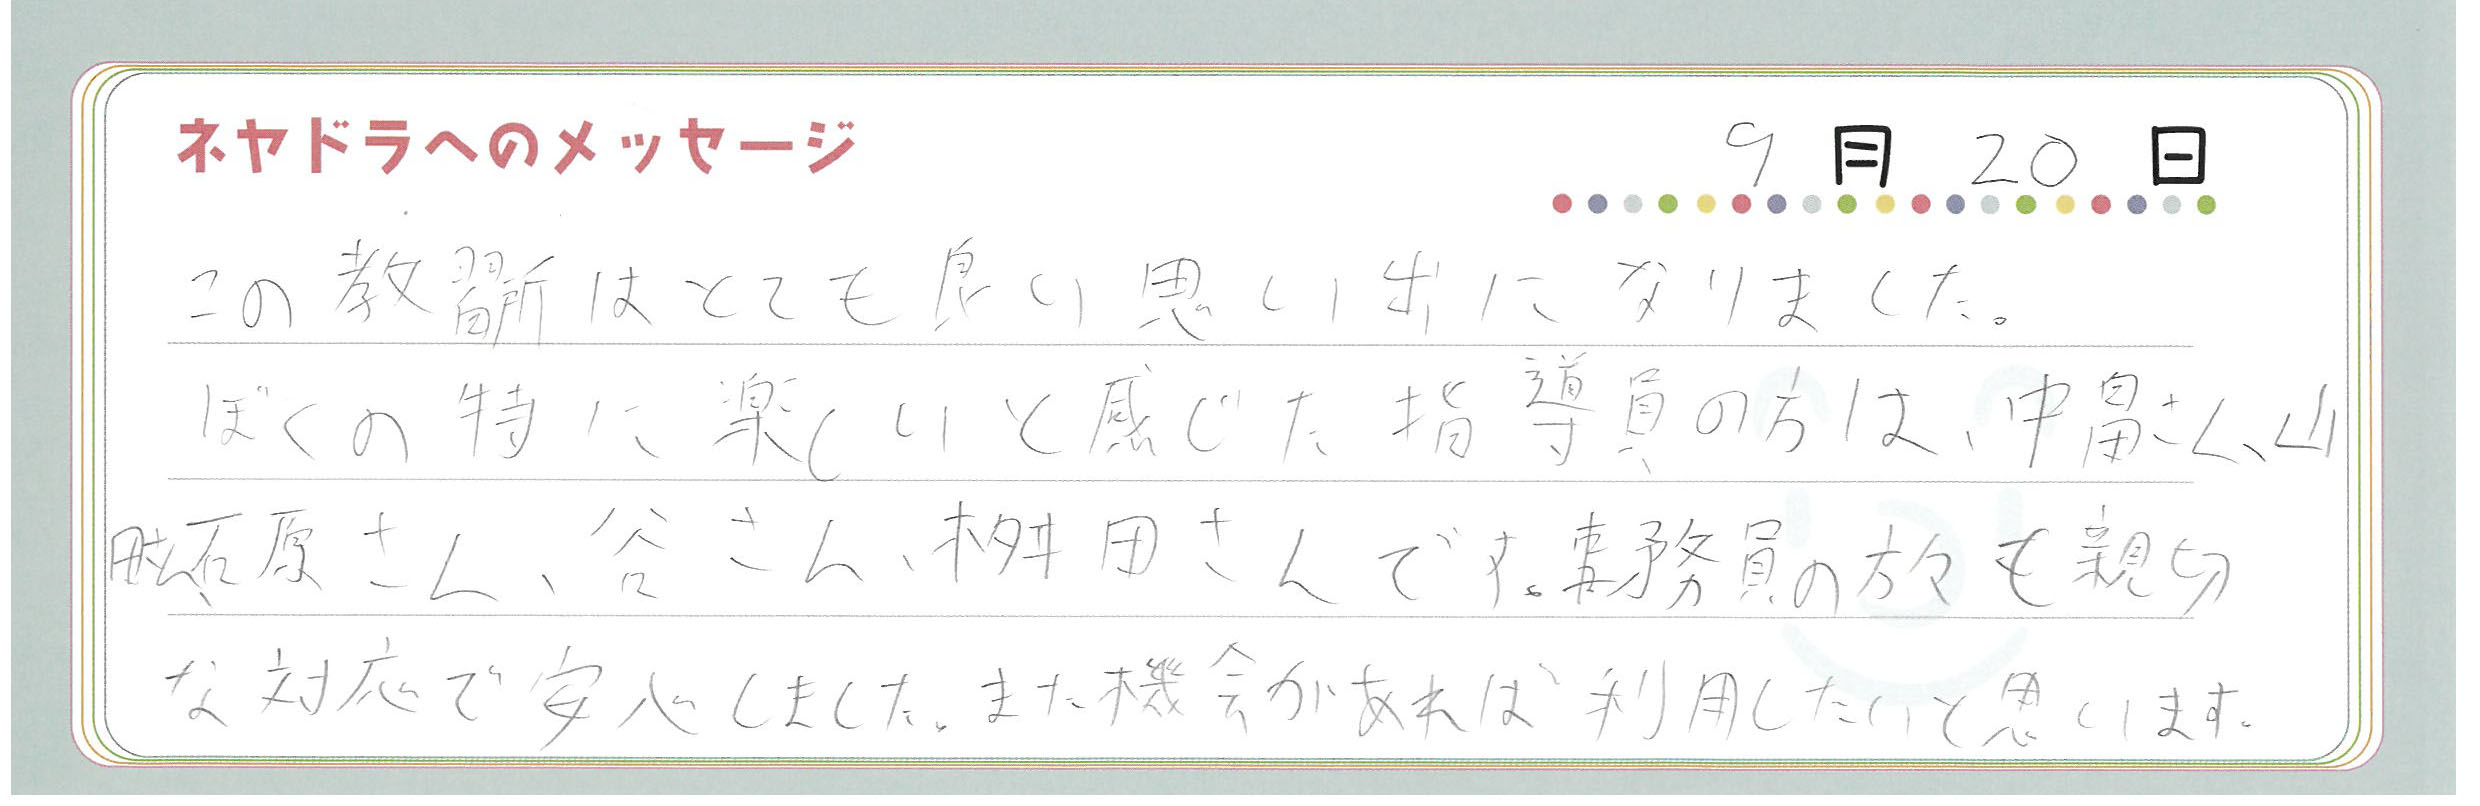 ネヤドラへのメッセージ
9月20日
この教習所はとても良い思い出になりました。
ぼくの特に楽しいと感じた指導員の方は、中畠さん、山
田さん、石原さん、谷さん、桝田さんです。事務員の方々も親切
な対応で安心しました。また機会があれば利用したいと思います。